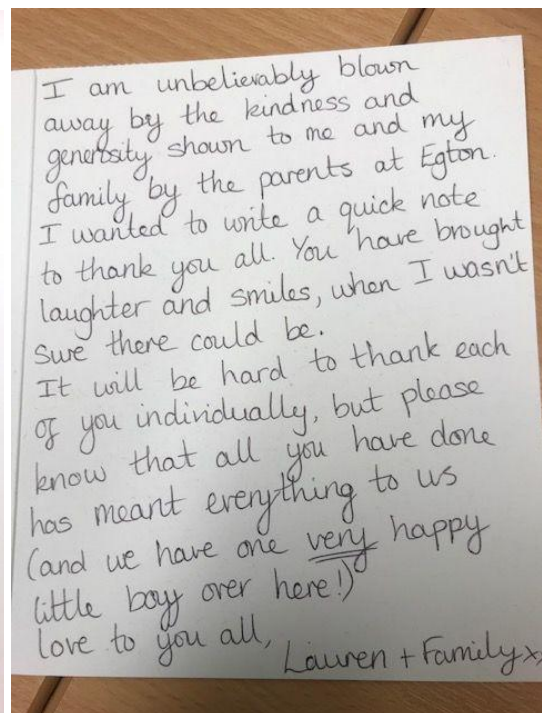 I am unbelievably blown
away by the kindness and
generosity shown to me and my
family by the parents at Egton.
I wanted to write a quick note
to thank you all. You have brought
laughter and smiles, when I wasn't
sure there could be.
It will be hard to thank each
of you individually, but please
know that all you have done
has meant everything to us
(and we have one very happy
little boy over here!)
Love to you all,
Lauren + Family x